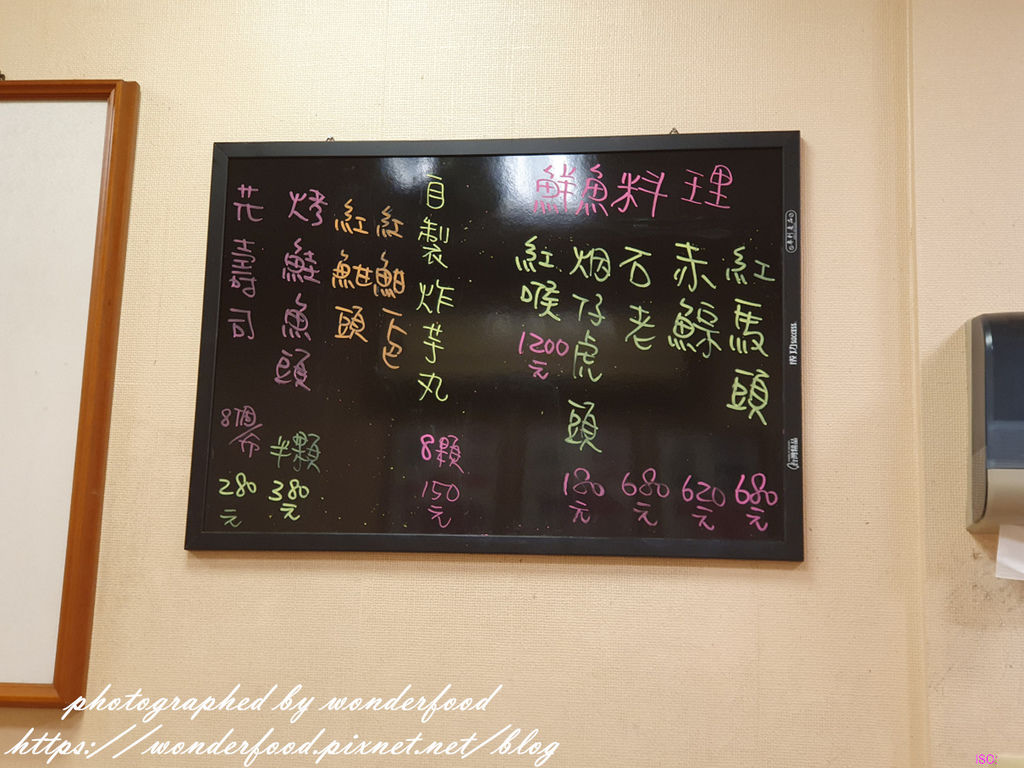 鮮魚料理
紅馬頭 680元
赤鯮 620元
石老 680元
烟仔虎頭 180元
紅喉 1200元
自製炸芋丸 8顆 150元
紅魽下巴
紅魽頭
烤鮮魚頭 半顆 380元
花壽司 8個/份 280元
成功success
台灣精品
photographed by wonderfood
https://wonderfood.pixnet.net/blog